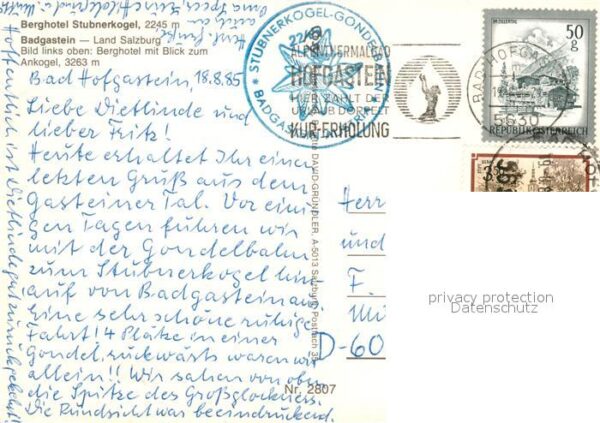 Berghotel Stubnerkogel, 2245 m
Badgastein — Land Salzburg
Bild links oben: Berghotel mit Blick zum
Ankogel, 3263 m
Bad Hofgastein, 18.8.85
Liebe Dietlinde und
lieber Fritz!
Heute erhaltet Ihr einen
letzten Gruß aus dem
Gasteiner Tal. Vor eini-
gen Tagen fuhren wir
mit der Gondelbahn
zum Stubnerkogel hin-
auf von Badgastein aus.
Eine sehr schöne ruhige
Fahrt! 4 Plätze in einer
Gondel, rückwärts waren wir
allein!! Wir sahen von oben
die Spitze des Großglockners.
Die Rundsicht war beeindruckend.
Hoffentlich ist Dietlinde gut zurückgekehrt!
STUBNERKOGEL-GONDEL
2245
BADGASTEIN
ALPENTHERMALBAD
HOFGASTEIN
HIER ZÄHLT DER
URLAUB DOPPELT
KUR-ERHOLUNG
BAD HOFGASTEIN
5630
IM ZILLERTAL
50
g
REPUBLIK ÖSTERREICH
DAVID GRÜNDLER, A-5013 Salzburg, Postfach 35
Nr. 2807
Herr
und
F.
D-60
privacy protection
Datenschutz